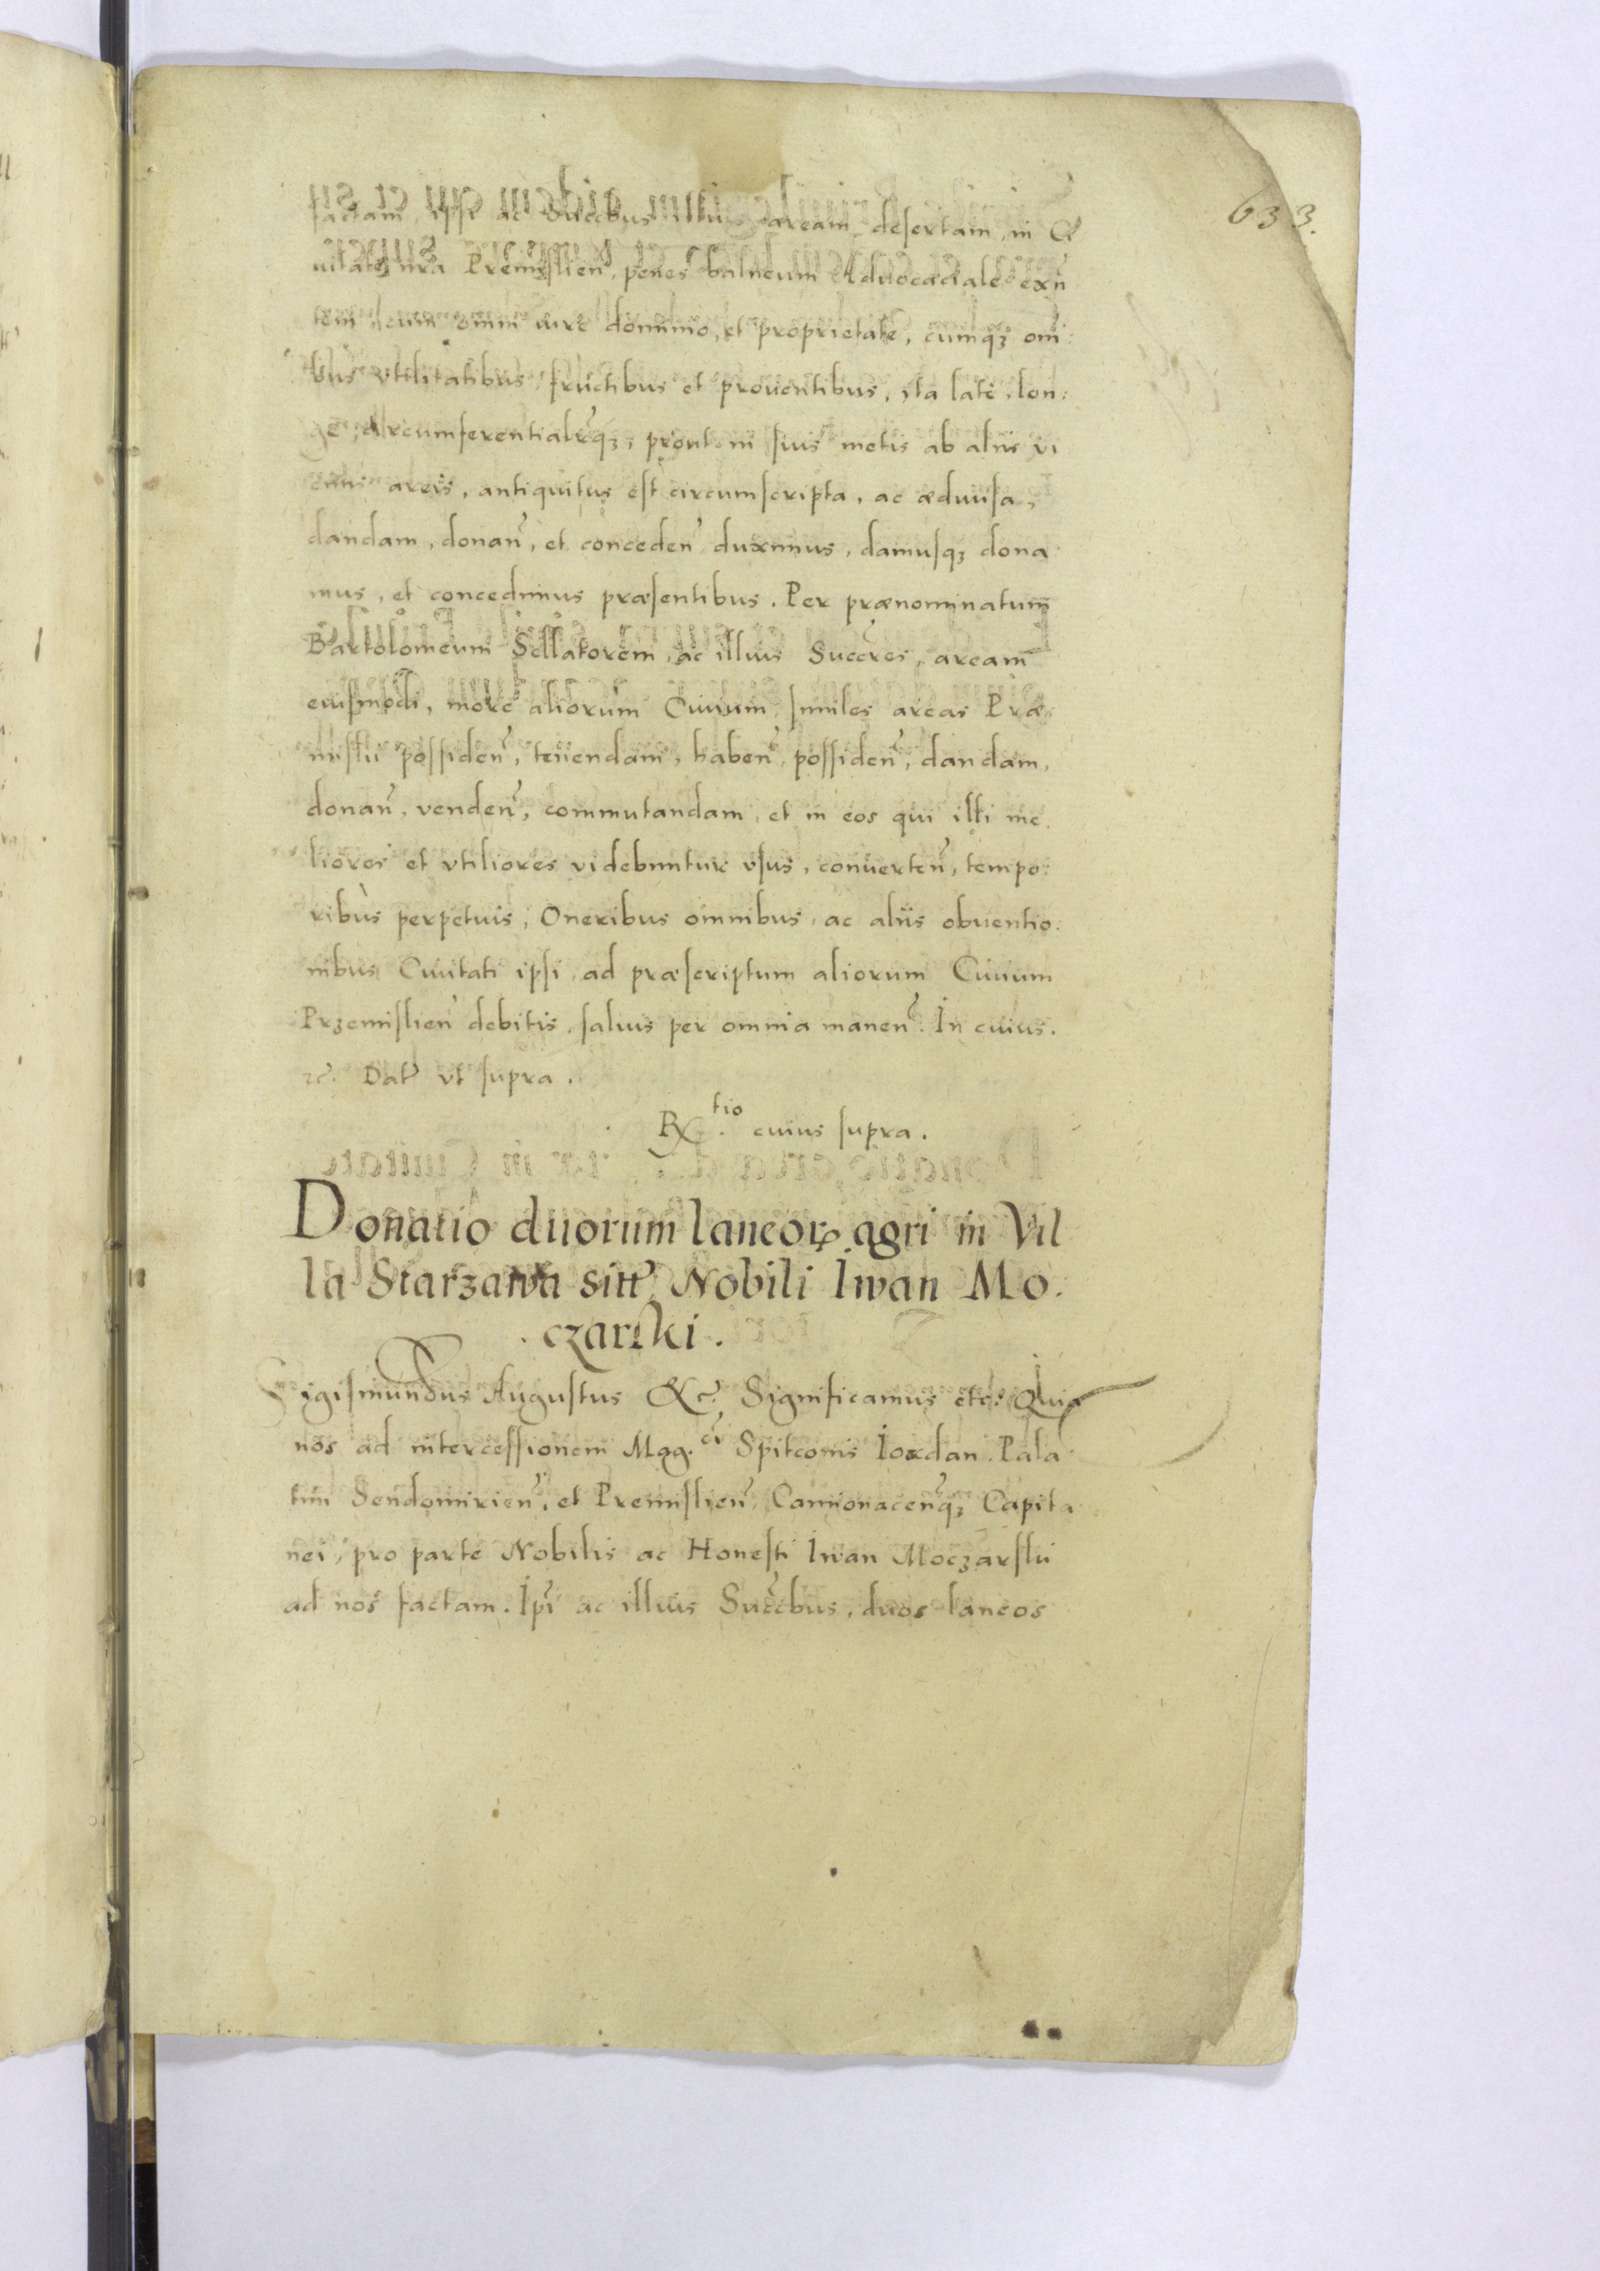 633.
factam, ipsi ac Succbus illius aream desertam, in Ci
uitate nra Premislien̄, penes balneum Aduocatiale exn̄
tem, cum omni iure dominio, et proprietate, cumqꝫ omī:
bus vtilitatibus, fructibus et prouentibus, ita late, lon:
ge, circumferentialr̄qꝫ, prout in suis metis ab aliis vi
cinis areis, antiquitus est circumscripta, ac aeduuisa,
dandam, donan̄, et conceden̄ duximus, damusqꝫ dona
mus, et concedimus præsentibus. Per prænominatum
Bartolomeum Sellatorem, ac illius Succres, aream
eiusmodi, more aliorum Ciuium similes areas Præ
mislii possiden̄, tenendam, haben̄, possiden̄, dandam,
donan̄, venden̄, commutandam, et in eos qui illi me
liores et vtiliores videbuntur vsus, conuerten̄, tempo:
ribus perpetuis, Oneribus omnibus, ac aliis obuentio:
nibus Ciuitati ipsi, ad præscriptum aliorum Ciuium
Przemislien̄ debitis, saluis per omnia manen̄. In cuius.
ꝛc. Dat̄ vt supra.
Rx.tio cuius supra.
Donatio duorum laneorꝝ agri in Vil
la Starzawa sitt̄ Nobili Iwan Mo.
czarski.
Sigismundus Augustus &c. Significamus etc: Quia
nos ad intercessionem Mag.ci Spitconis Iordan Pala
tini Sendomirien̄, et Premislien̄, Camionacen̄qꝫ Capita
nei, pro parte Nobilis ac Honesti Iwan Moczarski
ad nos factam. Ip̄i ac illius Succ̄bus, duos laneos